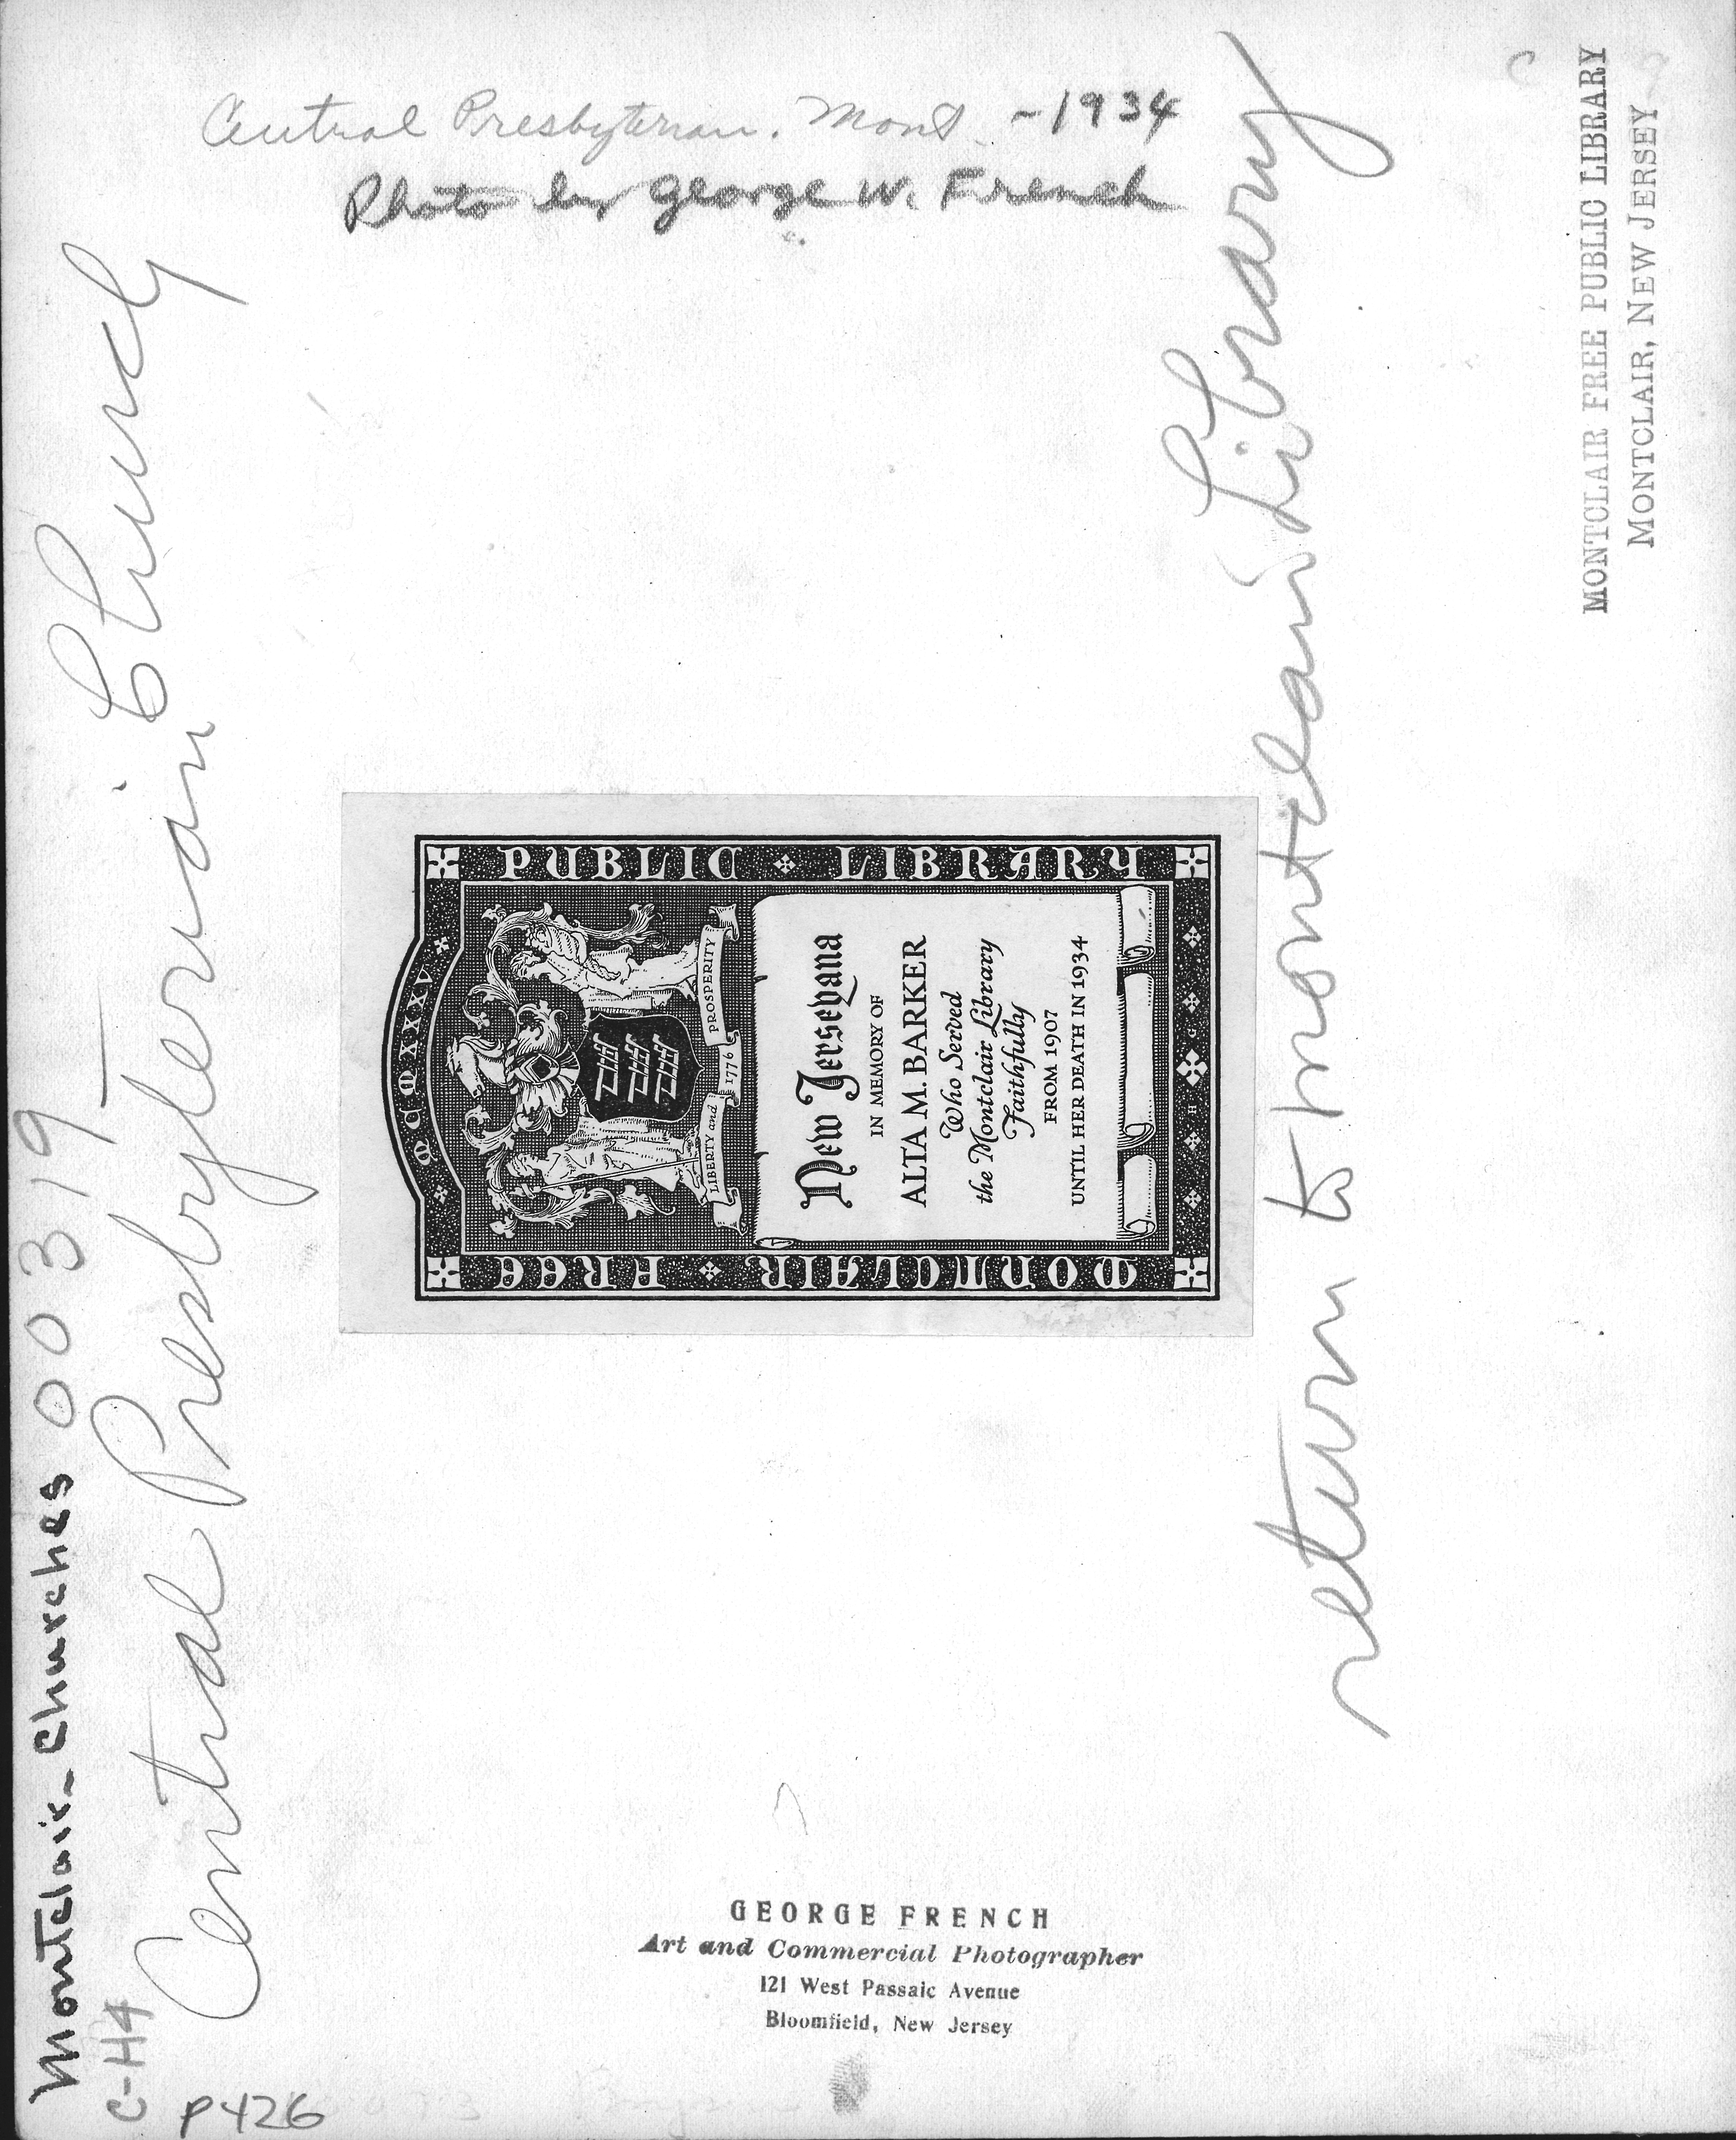 Central Presbyterian. Mont - 1934
Photo by George W. French
MONTCLAIR FREE PUBLIC LIBRARY
MONTCLAIR, NEW JERSEY
Montclair - Churches 00319
Central Presbyterian Church
C-H4
P426
MONTCLAIR FREE
PUBLIC LIBRARY
LIBERTY and 1776 PROSPERITY
New Jerseyana
IN MEMORY OF
ALTA M. BARKER
Who Served
the Montclair Library
Faithfully
FROM 1907
UNTIL HER DEATH IN 1934
return to Montclair Library
GEORGE FRENCH
Art and Commercial Photographer
121 West Passaic Avenue
Bloomfield, New Jersey